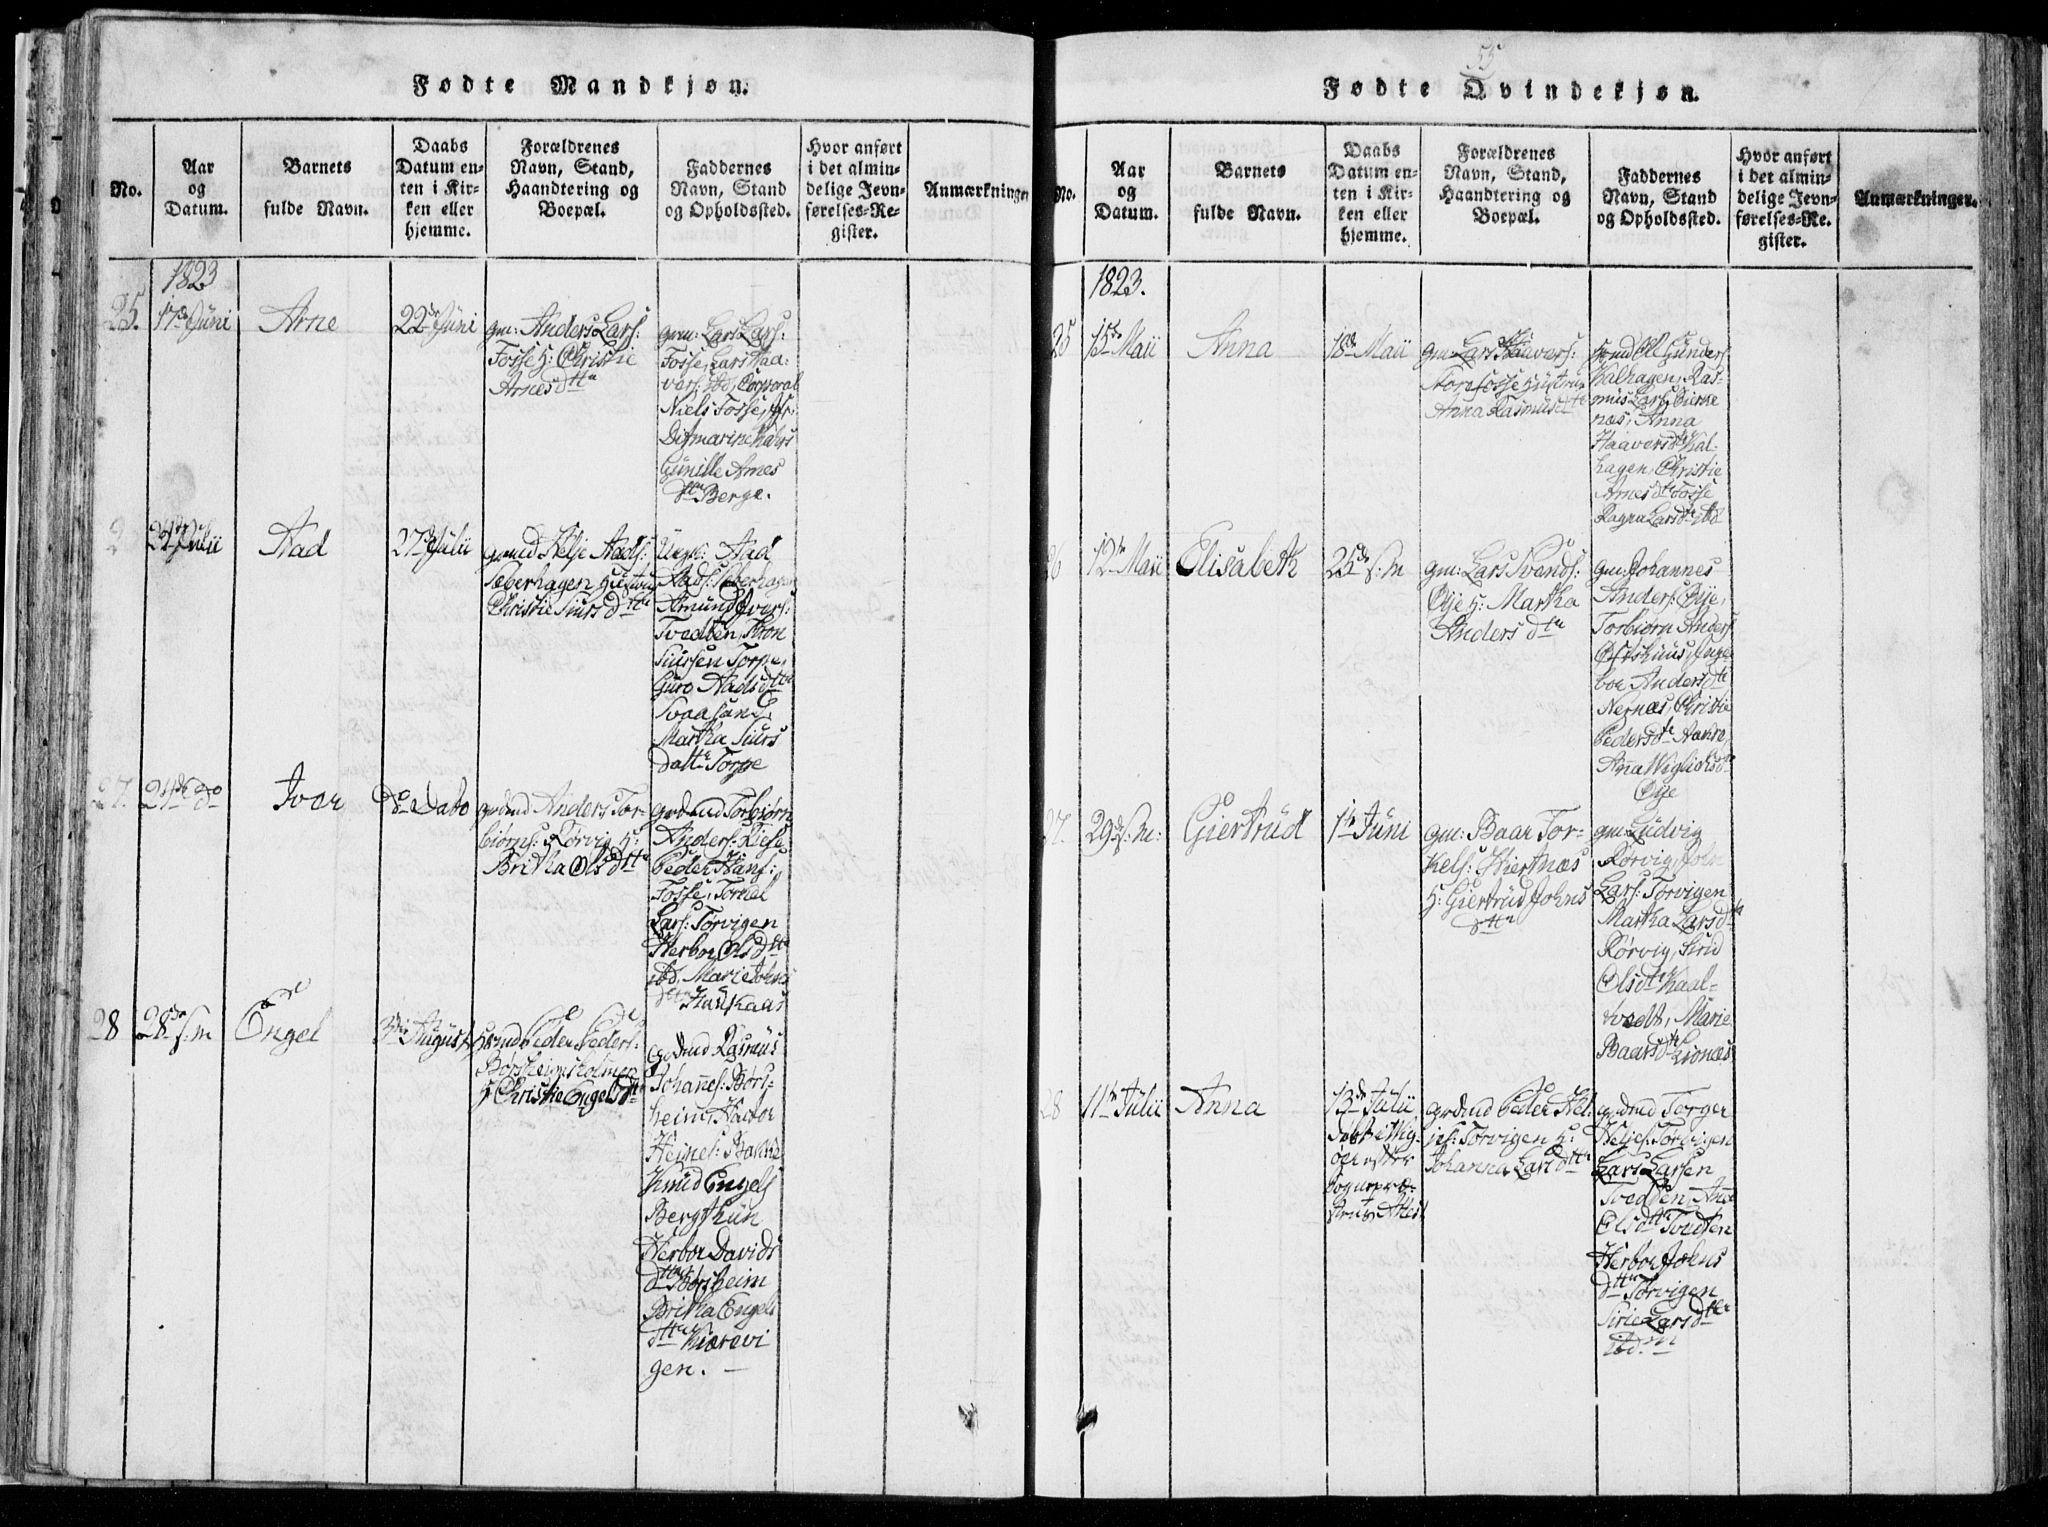 Fødte Mandkjøn.
No.
Aar
og
Datum.
Barnets
fulde Navn.
Daabs
Datum en-
ten i Kir-
ken eller
hjemme.
Forældrenes
Navn, Stand,
Haandtering og
Boepæl.
Faddernes
Navn, Stand
og Opholdssted.
Hvor anført
i det almin-
delige Jevn-
førelses-Re-
gister.
Anmærkninger
1823
25.
17de Juni
Arne
22de Juni
gm: Anders Lars:
Fosse H: Christie
Arnes dtr
gm: Lars Lars:
Fosse, Lars Haa-
vars: ibd, Corporal
Niels Fosse, Jfr:
Ditmarine
Gunille Arnes
dtr Berge.
2
24de Julii
Aad
27de Julii
grmd Helje Aads:
Sæberhagen Hustru
Christie Siurs dtr
Ungk: Aad
Aads: Sæberhagen
Amund Ivars:
Tvedten, Thron
Siursen Torpe,
Guro Aadsdtr
Svaasand,
Martha Siurs
datter Torpe
27.
24de do
Ivar
Do Dato
grdmd Anders Tor-
biørns: Rørvig H:
Britha Olsdtr
grdmd Torbiørn
Anders:
Peder Hans:
Fosse, Tormel
Lars: Torvigen
Herbor Olsdtr
ibd, Marie Johns
dtr Haukaas
28
28de s: m
Engel
3die August
Hsmd Peder Peders:
Børsheimsholmen
H Christie Engelsdtr
grdmd Rasmus
Johannes: Børs-
heim, Haavor
Heines: Bakke
Knud Engels
Bergthun
Herbor Davids
dtr Børsheim
Britha Engels
dtr Kiærevi
gen. —
55
Fødte Qvindekjøn.
No.
Aar
og
Datum.
Barnets
fulde Navn.
Daabs
Datum en-
ten i Kir-
ken eller
hjemme.
Forældrenes
Navn, Stand,
Haandtering og
Boepæl.
Faddernes
Navn, Stand
og Opholdssted.
Hvor anført
i det almin-
delige Jevn-
førelses-Re-
gister.
Anmærkninger.
1823.
25
15de Maii
Anna
18de Maii
gm: Lars Haavars:
Norefosse Hustrue
Anna Rasmusdtr
Hsmd Ole Gunders
Kalhagen, Ras-
mus Lars: Birke
næs, Anna
Haaversdtr Kal-
hagen, Christie
Arnesdtr Fosse
Ragna Larsdtr ibd
26
12te Maii
Elisabeth
25de s: m
gm: Lars Svends:
Øije H: Martha
Anders dtr
gm: Johannes
Anders: Øije,
Torbiørn Anders
Østhuus, Inge
bor Andersdtr
Nernæs, Christie
Pedersdtr Aakre,
Anna Vigliksdtr
Øije
27.
29de s: m:
Giertrud
1ste Juni
gm: Baar Tor-
kels: Hiertnæs
H: Giertrud Johns
dtr
gm: Ludvig
Rørvig, John
Lars: Torvigen
Martha Larsdtr
Rørvig, Sirid
Olsdtr Kaal-
tvedt, Marie
Baarsdtr Lionæs
28
11te Julii
Anna
13de Julii
døbt i Vig-
ør efter
Sognepræ-
stens Attest
grdmd Peder Hel-
jes: Torvigen H:
Johanna Larsdtr
grdmd Torger
Heljes: Torvigen
Lars Larsen
Tvedten, Anna
Olsdtr Tvedten
Herbor Johns
dtr Torvigen
Sirie Larsdtr
ibd.m